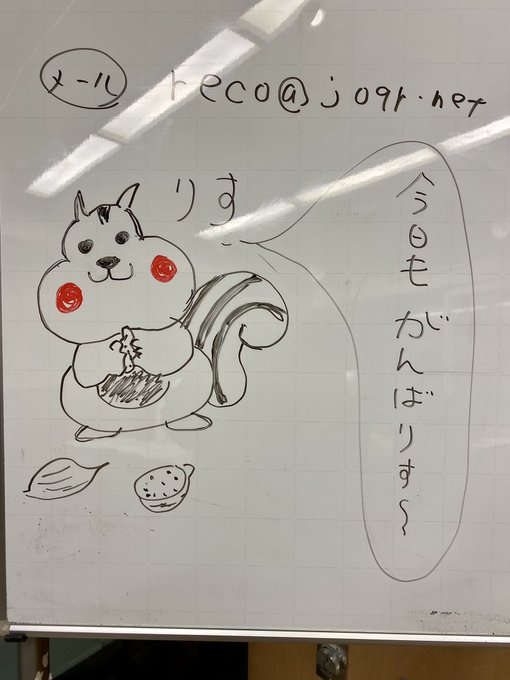 メール reco@joqr.net
りす
今日も がんばりす〜